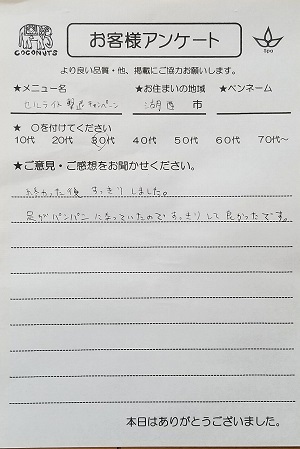 COCONUTS
お客様アンケート
Spa
より良い品質・他、掲載にご協力お願いします。
★メニュー名 ★お住まいの地域 ★ペンネーム
セルライト撃退キャンペーン 湖西 市
★ 〇を付けてください
10代 20代 30代 40代 50代 60代 70代～
★ご意見・ご感想をお聞かせください。
終わった後 すっきりしました。
足がパンパンになっていたのですっきりして良かったです。
本日はありがとうございました。